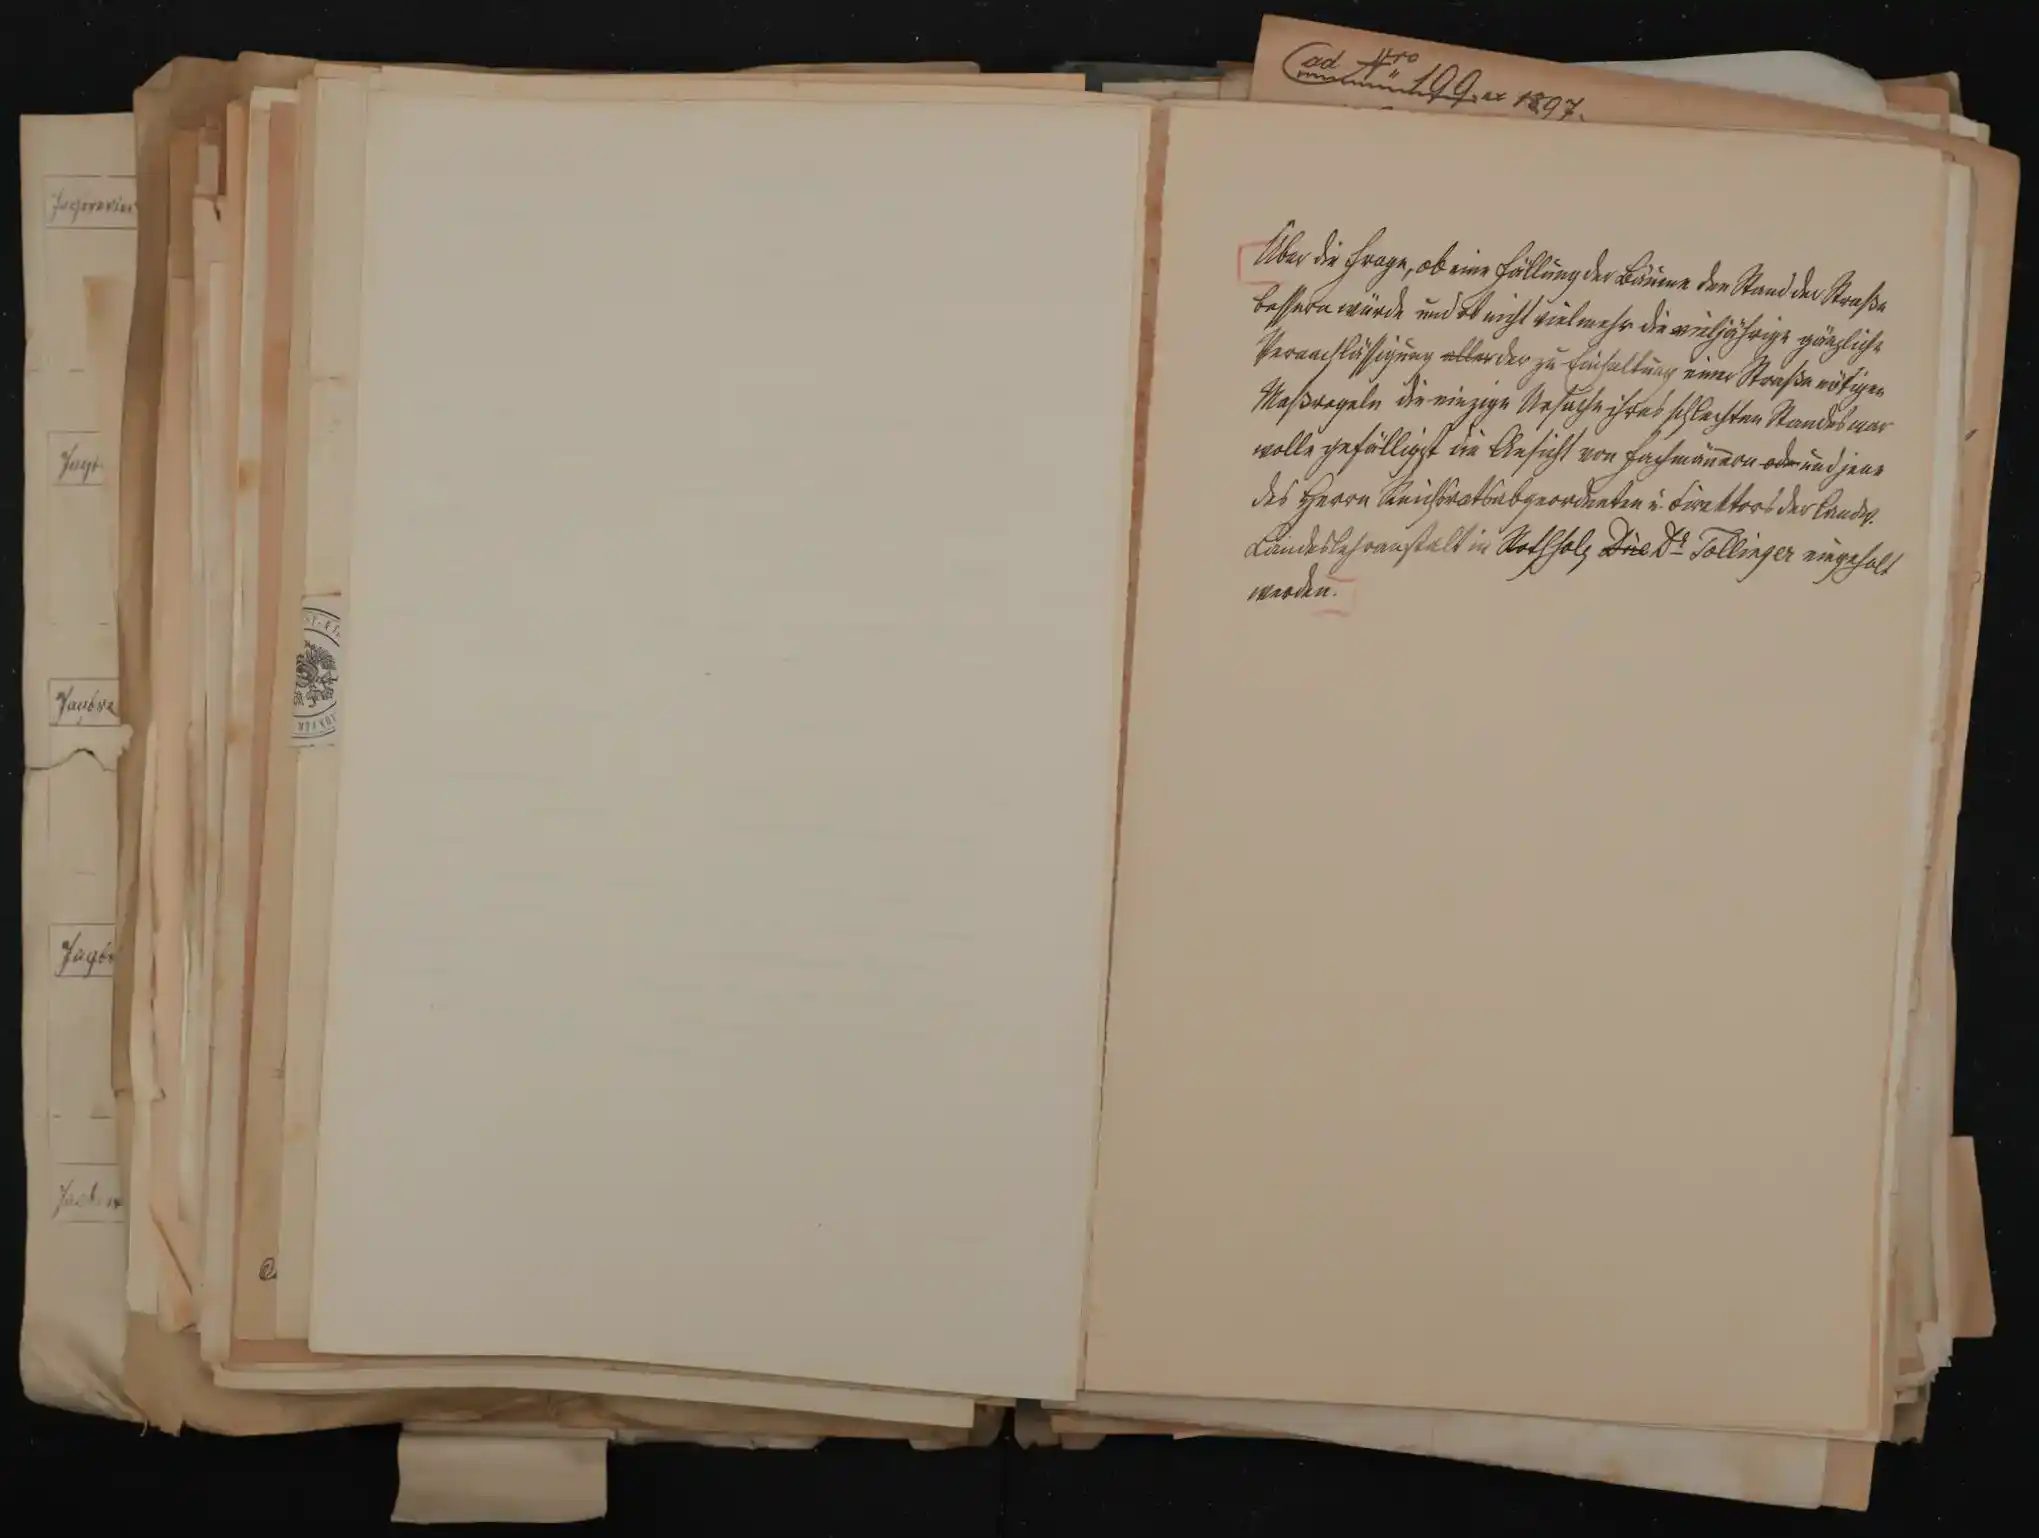 Jagdrevier
Jagd-
Jagdre
Jagdr
ad Nro 199 ex 1897.
Über die Frage, ob eine Fällung der Bäume den Stand der Straße
bessern würde und ob nicht vielmehr die vieljährige gänzliche
Vernachlässigung aller der zu Einhaltung einer Straße nötigen
Maßregeln die einzige Ursache ihres schlechten Standes war
wolle gefälligst die Ansicht von Fachmännern oder und jene
des Herrn Reichsratsabgeordneten u. Direktors der landw.
Landeslehranstalt in Rothholz Dr Tollinger eingeholt
werden.